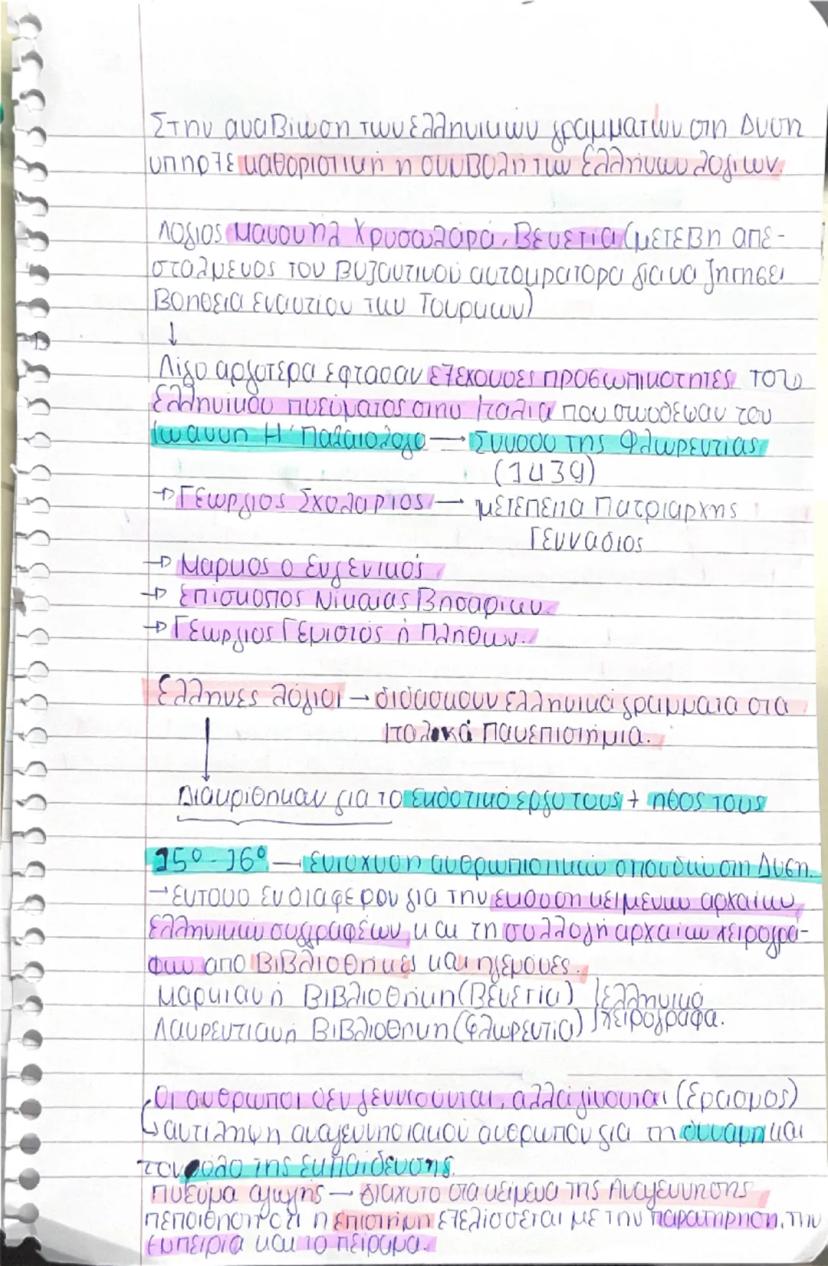 Στην αναβιωση των ελληνικων γραμματων στη Δυση
υπηρξε καθοριστικη η συμβολη των Ελληνων λογιων.
Λογιος Μανουηλ Χρυσωλαρά, Βενετια (μετεβη απε-
σταλμενος του Βυζαντινου αυτοκρατορα για να ζητησει
Βοηθεια εναντιον των Τουρκων)
↓
Λιγο αργοτερα εφτασαν εξεχουσες προσωπικοτητες του
ελληνικου πνευματος στην Ιταλια που συνοδεψαν τον
Ιωαννη Η' Παλαιολογο → Συνοδο της Φλωρεντιας
(1439)
→ Γεωργιος Σχολαριος → μετεπειτα Πατριαρχης
Γενναδιος
→ Μαρκος ο Ευγενικος
→ Επισκοπος Νικαιας Βησαριων.
→ Γεωργιος Γεμιστος ή Πληθων.
Ελληνες λόγιοι → διδασκουν ελληνικά γραμματα στα
Ιταλικά Πανεπιστήμια.
Διακριθηκαν για το εκδοτικο εργο τους + ηθος τους
15ο - 16ο → ενισχυση ανθρωπιστικων σπουδων στη Δυση.
→ εντονο ενδιαφερον για την εκδοση κειμενων αρχαιων
ελληνικων συγγραφέων και τη συλλογή αρχαιων χειρογρα-
φων απο Βιβλιοθηκες και ηγεμονες.
Μαρκιανή Βιβλιοθήκη (Βενετια) ελληνικα
Λαυρεντιανή Βιβλιοθηκη (Φλωρεντια) χειρόγραφα.
Οι ανθρωποι δεν γεννιουνται, αλλα γινονται (Ερασμος)
→ αντιληψη αναγεννησιακού ανθρωπου για τη δυναμη και
τον ρόλο της εκπαιδευσης.
Πνευμα αγωγης → διαχυτο στα κειμενα της Αναγεννησης
πεποιθηση οτι η επιστημη εξελισσεται με την παρατηρηση, την
εμπειρια και το πειραμα.